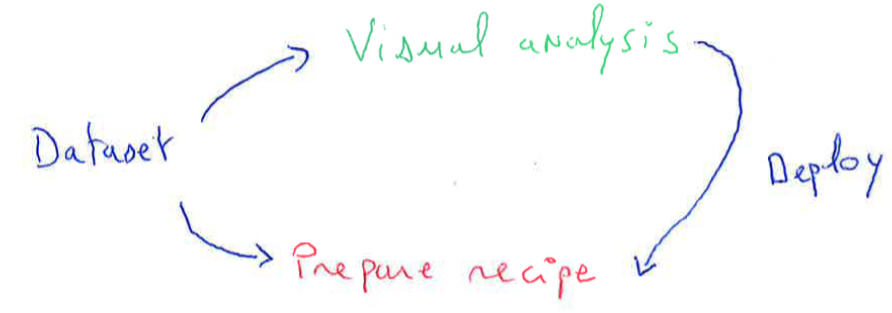 Visual analysis
Dataset
Deploy
Prepare recipe